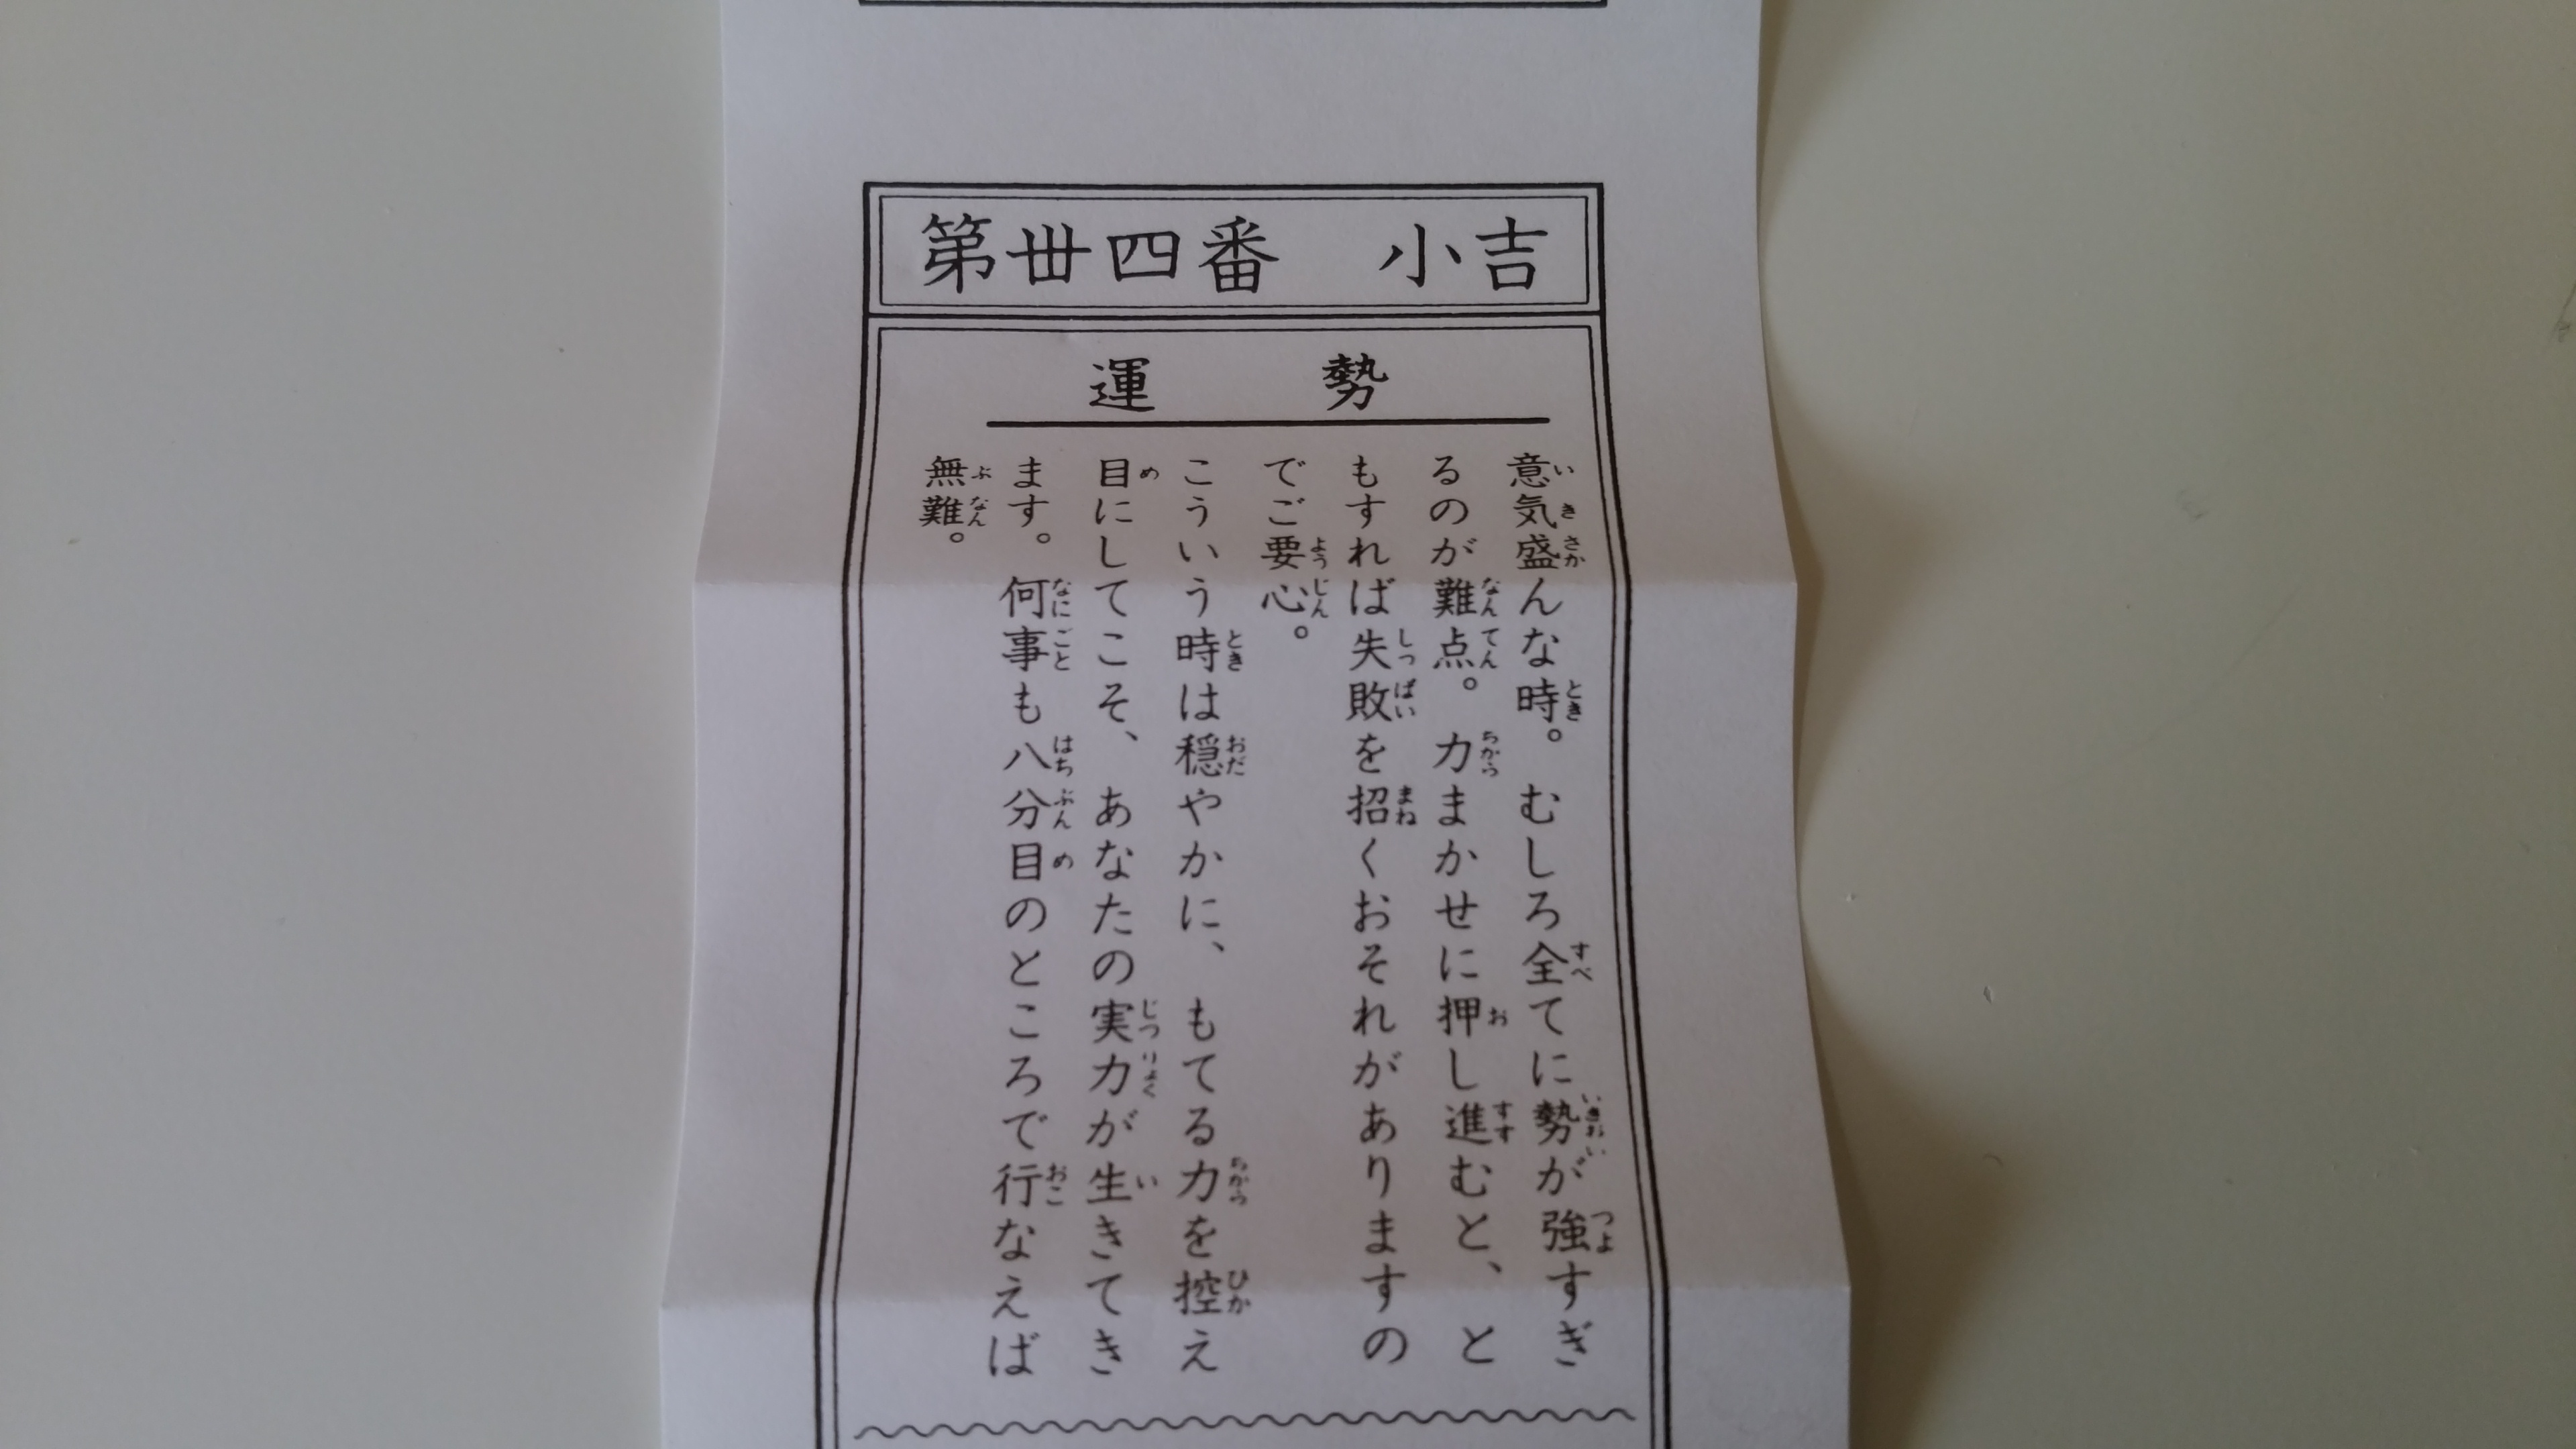 第丗四番　小吉
運　勢
意気盛んな時。むしろ全てに勢が強すぎ
るのが難点。力まかせに押し進むと、と
もすれば失敗を招くおそれがありますの
でご要心。
こういう時は穏やかに、もてる力を控え
目にしてこそ、あなたの実力が生きてき
ます。何事も八分目のところで行なえば
無難。